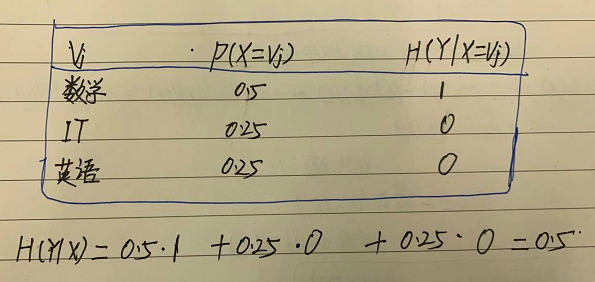 Vj P(X=Vj) H(Y|X=Vj)
数学 0.5 1
IT 0.25 0
英语 0.25 0
H(Y|X)= 0.5·1 +0.25·0 +0.25·0 =0.5